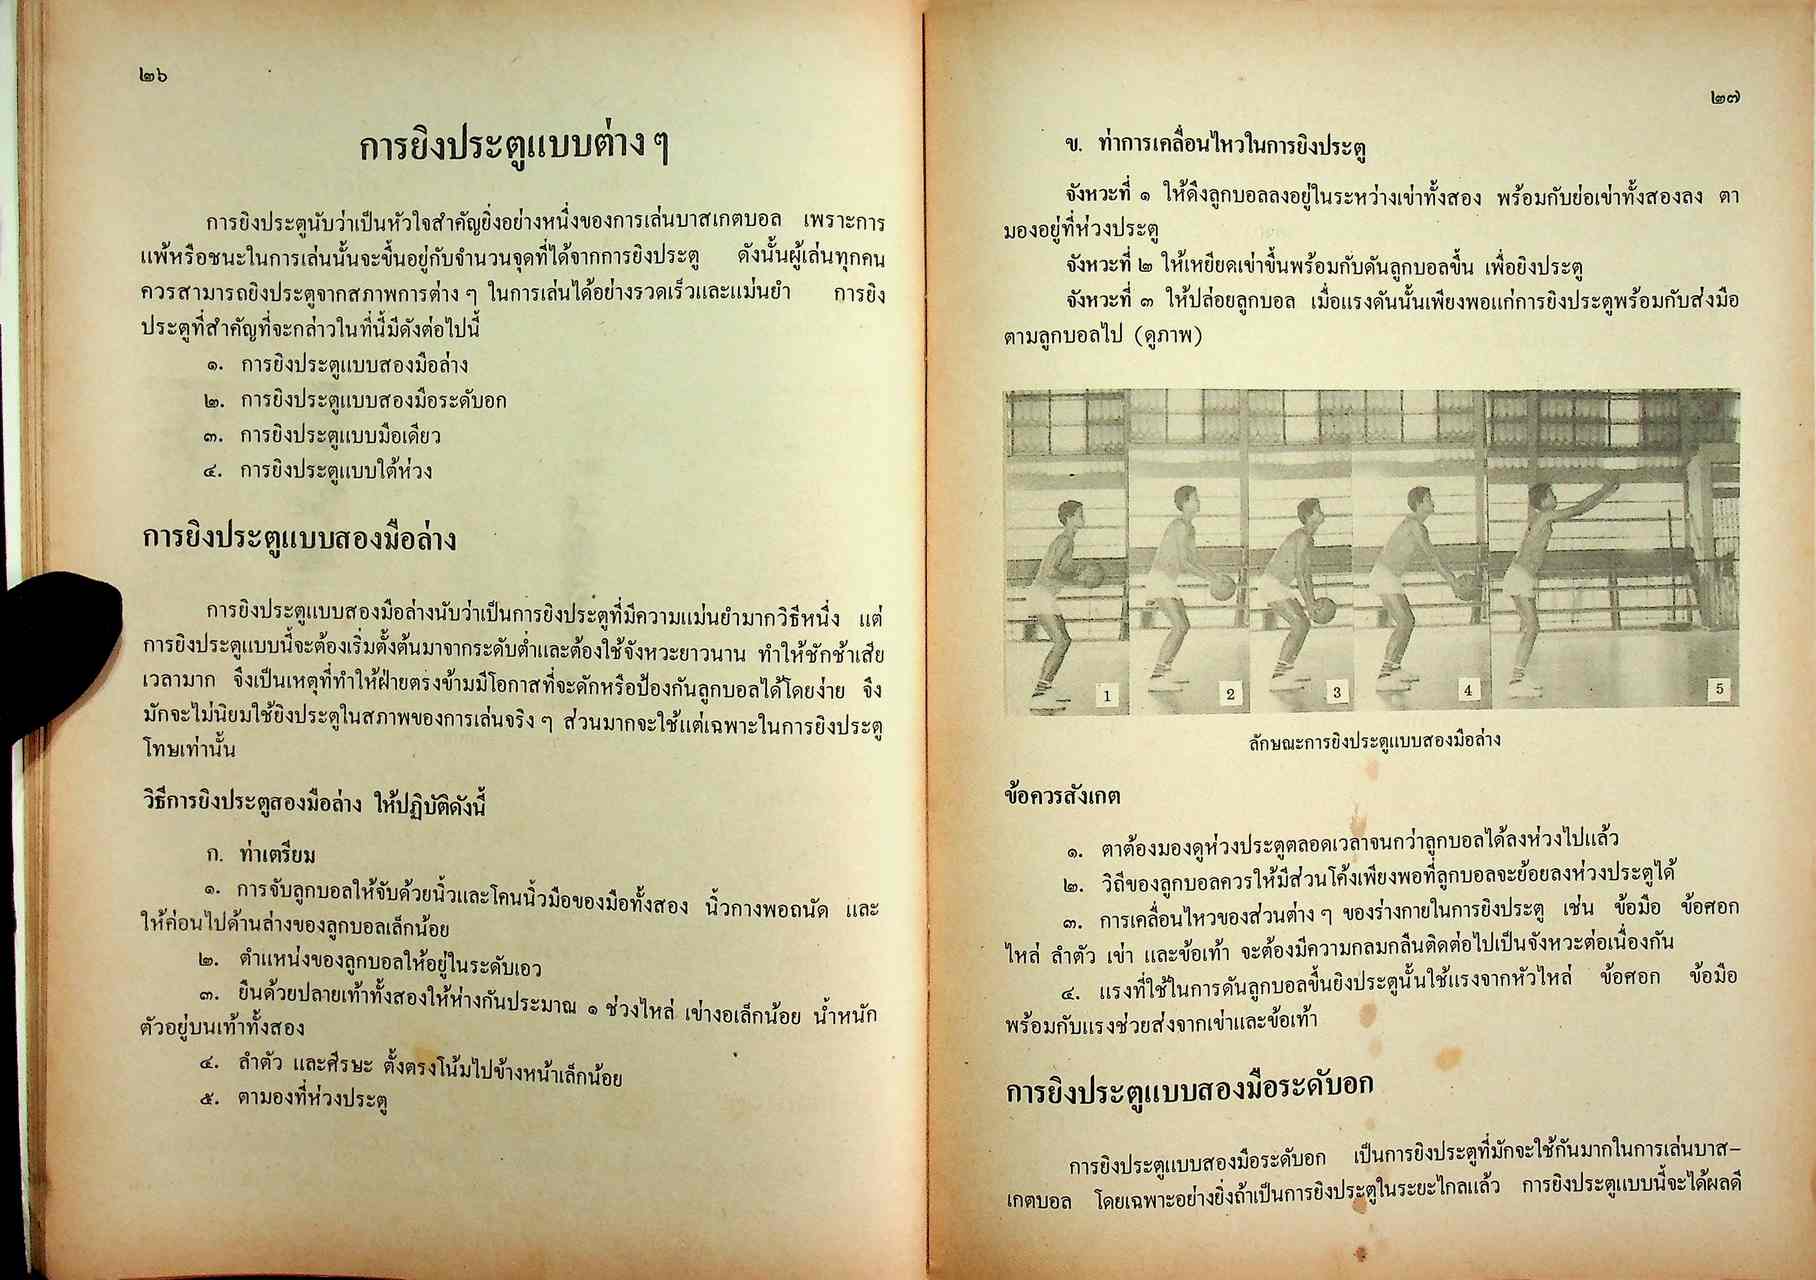 ๒๖
การยิงประตูแบบต่าง ๆ
การยิงประตูนับว่าเป็นหัวใจสำคัญยิ่งอย่างหนึ่งของการเล่นบาสเกตบอล เพราะการ
แพ้หรือชนะในการเล่นนั้นจะขึ้นอยู่กับจำนวนจุดที่ได้จากการยิงประตู ดังนั้นผู้เล่นทุกคน
ควรสามารถยิงประตูจากสภาพการต่าง ๆ ในการเล่นได้อย่างรวดเร็วและแม่นยำ การยิง
ประตูที่สำคัญที่จะกล่าวในที่นี้มีดังต่อไปนี้
๑. การยิงประตูแบบสองมือล่าง
๒. การยิงประตูแบบสองมือระดับอก
๓. การยิงประตูแบบมือเดียว
๔. การยิงประตูแบบใต้ห่วง
การยิงประตูแบบสองมือล่าง
การยิงประตูแบบสองมือล่างนับว่าเป็นการยิงประตูที่มีความแม่นยำมากวิธีหนึ่ง แต่
การยิงประตูแบบนี้จะต้องเริ่มตั้งต้นมาจากระดับต่ำและต้องใช้จังหวะยาวนาน ทำให้ชักช้าเสีย
เวลามาก จึงเป็นเหตุที่ทำให้ฝ่ายตรงข้ามมีโอกาสที่จะดักหรือป้องกันลูกบอลได้โดยง่าย จึง
มักจะไม่นิยมใช้ยิงประตูในสภาพของการเล่นจริง ๆ ส่วนมากจะใช้แต่เฉพาะในการยิงประตู
โทษเท่านั้น
วิธีการยิงประตูสองมือล่าง ให้ปฏิบัติดังนี้
ก. ท่าเตรียม
๑. การจับลูกบอลให้จับด้วยนิ้วและโคนนิ้วมือของมือทั้งสอง นิ้วกางพอถนัด และ
ให้ค่อนไปด้านล่างของลูกบอลเล็กน้อย
๒. ตำแหน่งของลูกบอลให้อยู่ในระดับเอว
๓. ยืนด้วยปลายเท้าทั้งสองให้ห่างกันประมาณ ๑ ช่วงไหล่ เข่างอเล็กน้อย น้ำหนัก
ตัวอยู่บนเท้าทั้งสอง
๔. ลำตัว และศีรษะ ตั้งตรงโน้มไปข้างหน้าเล็กน้อย
๕. ตามองที่ห่วงประตู
๒๗
ข. ท่าการเคลื่อนไหวในการยิงประตู
จังหวะที่ ๑ ให้ดึงลูกบอลลงอยู่ในระหว่างเข่าทั้งสอง พร้อมกับย่อเข่าทั้งสองลง ตา
มองอยู่ที่ห่วงประตู
จังหวะที่ ๒ ให้เหยียดเข่าขึ้นพร้อมกับดันลูกบอลขึ้น เพื่อยิงประตู
จังหวะที่ ๓ ให้ปล่อยลูกบอล เมื่อแรงดันนั้นเพียงพอแก่การยิงประตูพร้อมกับส่งมือ
ตามลูกบอลไป (ดูภาพ)
1 2 3 4 5
ลักษณะการยิงประตูแบบสองมือล่าง
ข้อควรสังเกต
๑. ตาต้องมองดูห่วงประตูตลอดเวลาจนกว่าลูกบอลได้ลงห่วงไปแล้ว
๒. วิถีของลูกบอลควรให้มีส่วนโค้งเพียงพอที่ลูกบอลจะย้อยลงห่วงประตูได้
๓. การเคลื่อนไหวของส่วนต่าง ๆ ของร่างกายในการยิงประตู เช่น ข้อมือ ข้อศอก
ไหล่ ลำตัว เข่า และข้อเท้า จะต้องมีความกลมกลืนติดต่อไปเป็นจังหวะต่อเนื่องกัน
๔. แรงที่ใช้ในการดันลูกบอลขึ้นยิงประตูนั้นใช้แรงจากหัวไหล่ ข้อศอก ข้อมือ
พร้อมกับแรงช่วยส่งจากเข่าและข้อเท้า
การยิงประตูแบบสองมือระดับอก
การยิงประตูแบบสองมือระดับอก เป็นการยิงประตูที่มักจะใช้กันมากในการเล่นบาส-
เกตบอล โดยเฉพาะอย่างยิ่งถ้าเป็นการยิงประตูในระยะไกลแล้ว การยิงประตูแบบนี้จะได้ผลดี